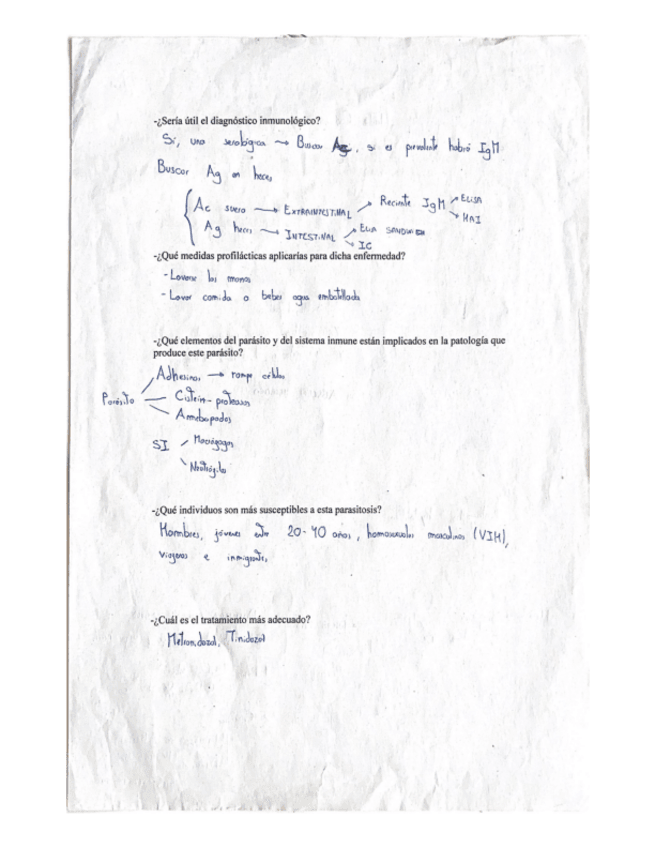 -¿Sería útil el diagnóstico inmunológico?
Si, una serológica → Buscar Ag, si es prevalente habrá IgM
Buscar Ag en heces
Ac suero → EXTRAINTESTINAL → Reciente IgM → ELISA
→ HAI
Ag heces → INTESTINAL → ELISA SANDWICH
→ IC
-¿Qué medidas profilácticas aplicarías para dicha enfermedad?
- Lavarse las manos
- Lavar comida o beber agua embotellada
-¿Qué elementos del parásito y del sistema inmune están implicados en la patología que
produce este parásito?
Parásito
Adhesinas → rompe células
Cistein-proteasas
Amebaporos
SI
Macrófagos
Neutrófilos
-¿Qué individuos son más susceptibles a esta parasitosis?
Hombres, jóvenes entre 20-40 años, homosexuales masculinos (VIH),
viajeros e inmigrantes
-¿Cuál es el tratamiento más adecuado?
Metronidazol, Tinidazol